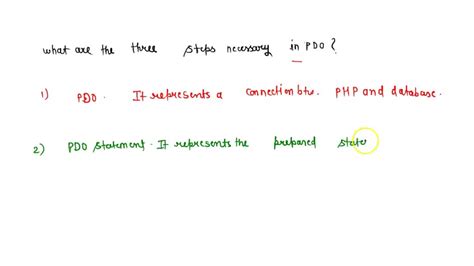 what are the three steps necessary in PDO?
1) PDO. It represents a connection btw. PHP and database.
2) PDO Statement. It represents the prepared state